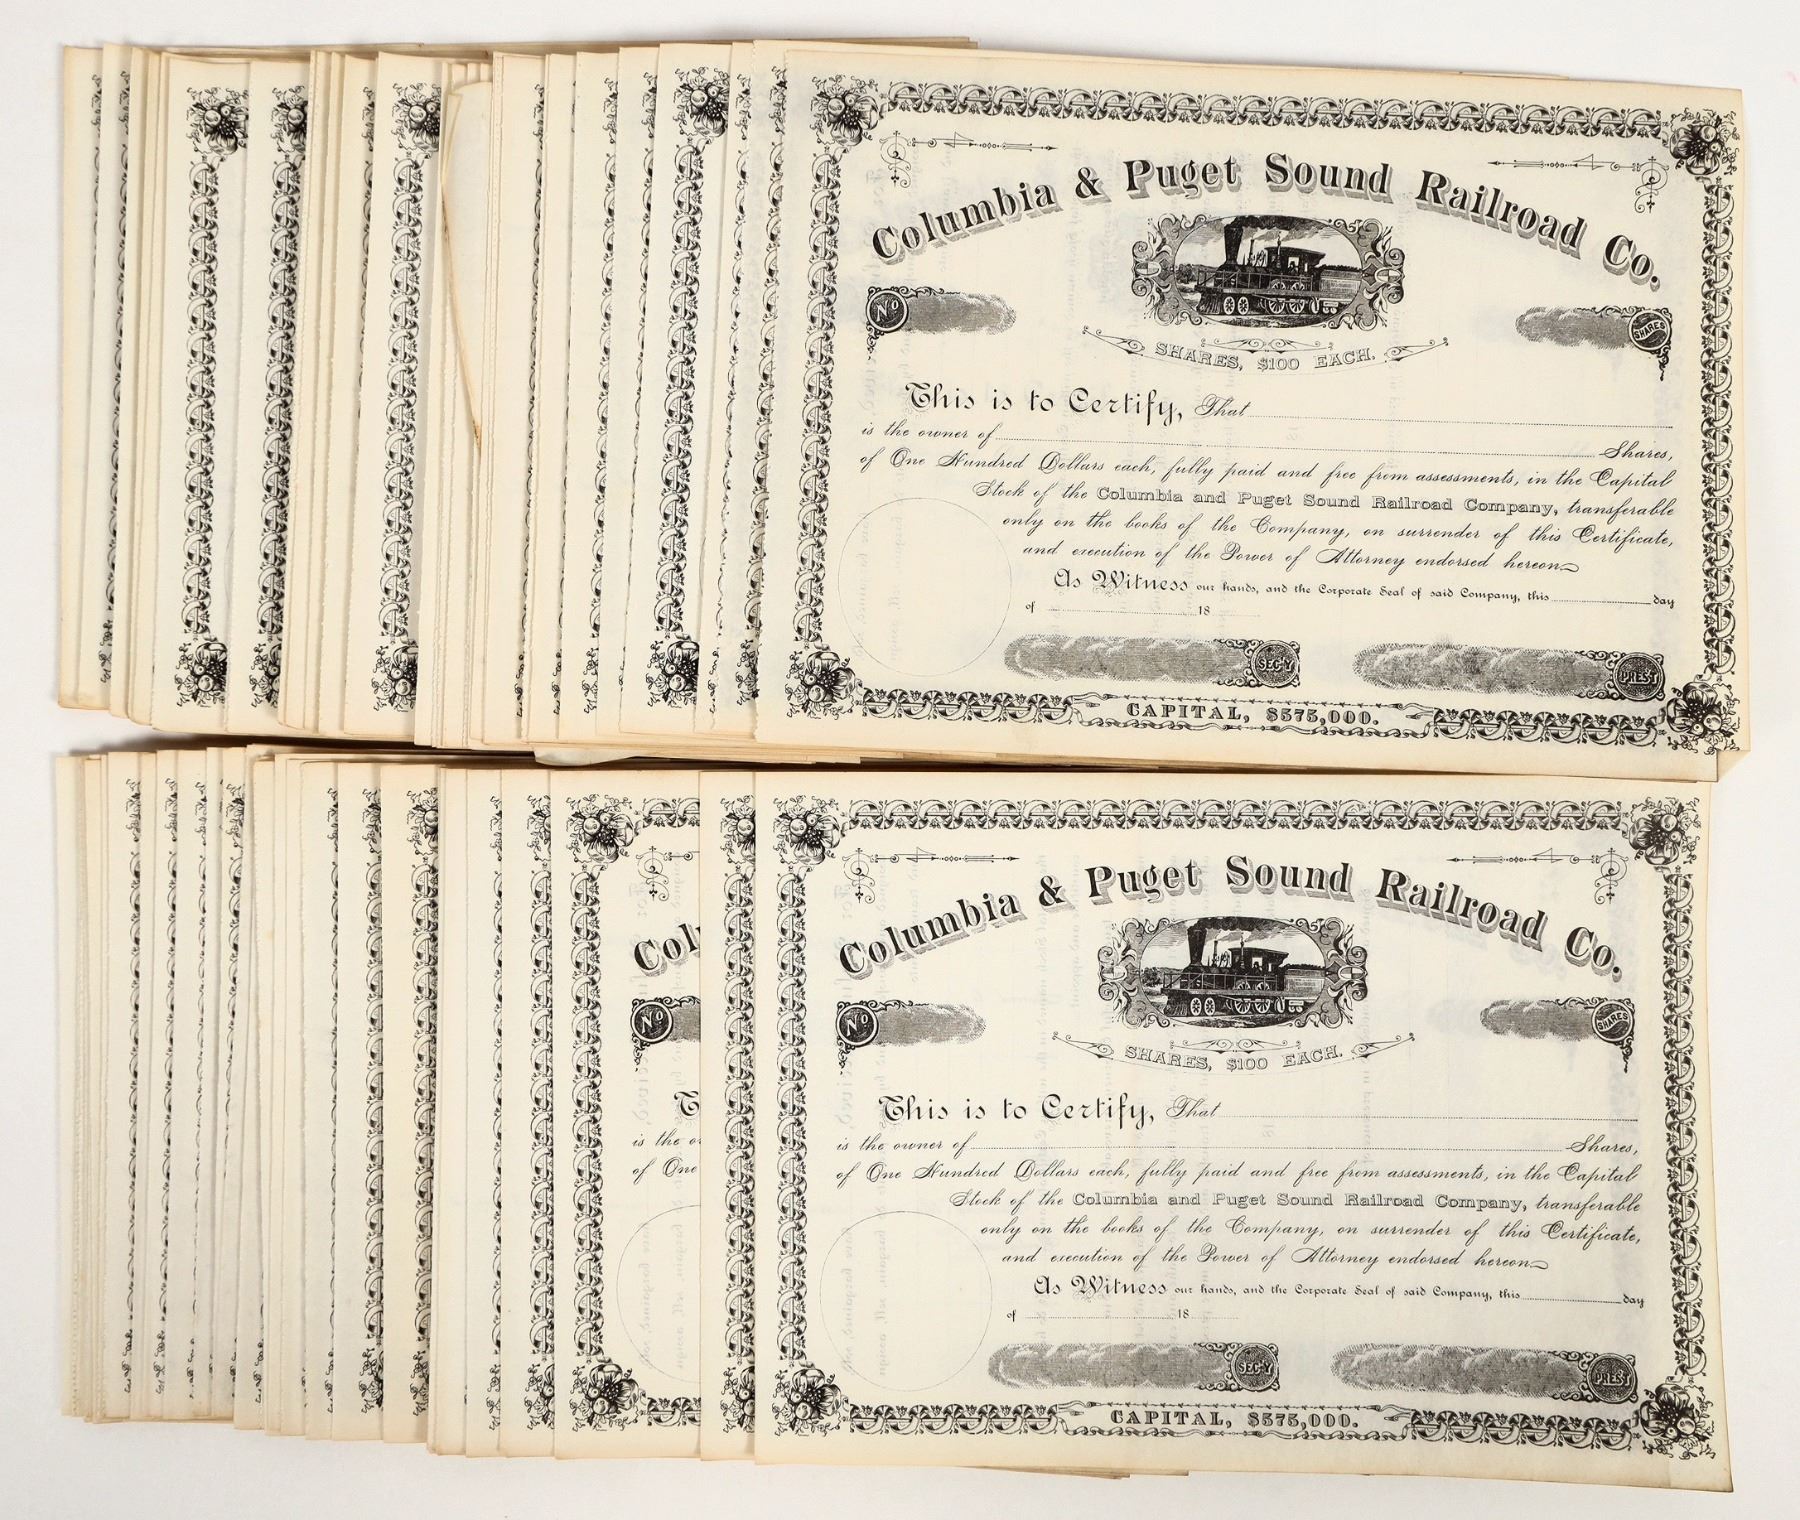 Columbia & Puget Sound Railroad Co.
No
SHARES
SHARES, $100 EACH.
This is to Certify, That
is the owner of Shares,
of One Hundred Dollars each, fully paid and free from assessments, in the Capital
Stock of the Columbia and Puget Sound Railroad Company, transferable
only on the books of the Company, on surrender of this Certificate,
and execution of the Power of Attorney endorsed hereon
As Witness our hands, and the Corporate Seal of said Company, this day
of 18
SEC'Y
PREST
CAPITAL, $575,000.
Col
No
is the o
of One
Columbia & Puget Sound Railroad Co.
No
SHARES
SHARES, $100 EACH.
This is to Certify, That
is the owner of Shares,
of One Hundred Dollars each, fully paid and free from assessments, in the Capital
Stock of the Columbia and Puget Sound Railroad Company, transferable
only on the books of the Company, on surrender of this Certificate,
and execution of the Power of Attorney endorsed hereon
As Witness our hands, and the Corporate Seal of said Company, this day
of 18
SEC'Y
PREST
CAPITAL, $575,000.